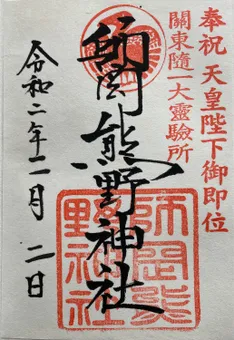 奉祝 天皇陛下御即位
關東隨一大靈驗所
師岡熊野神社
師岡熊
野神社
令和二年二月 二日